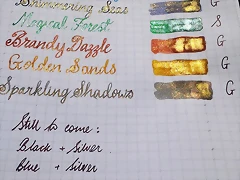 Shimmering Seas G
Magical Forest S
Brandy Dazzle G
Golden Sands G
Sparkling Shadows G
Still to come :
Black + Silver
Blue + Silver